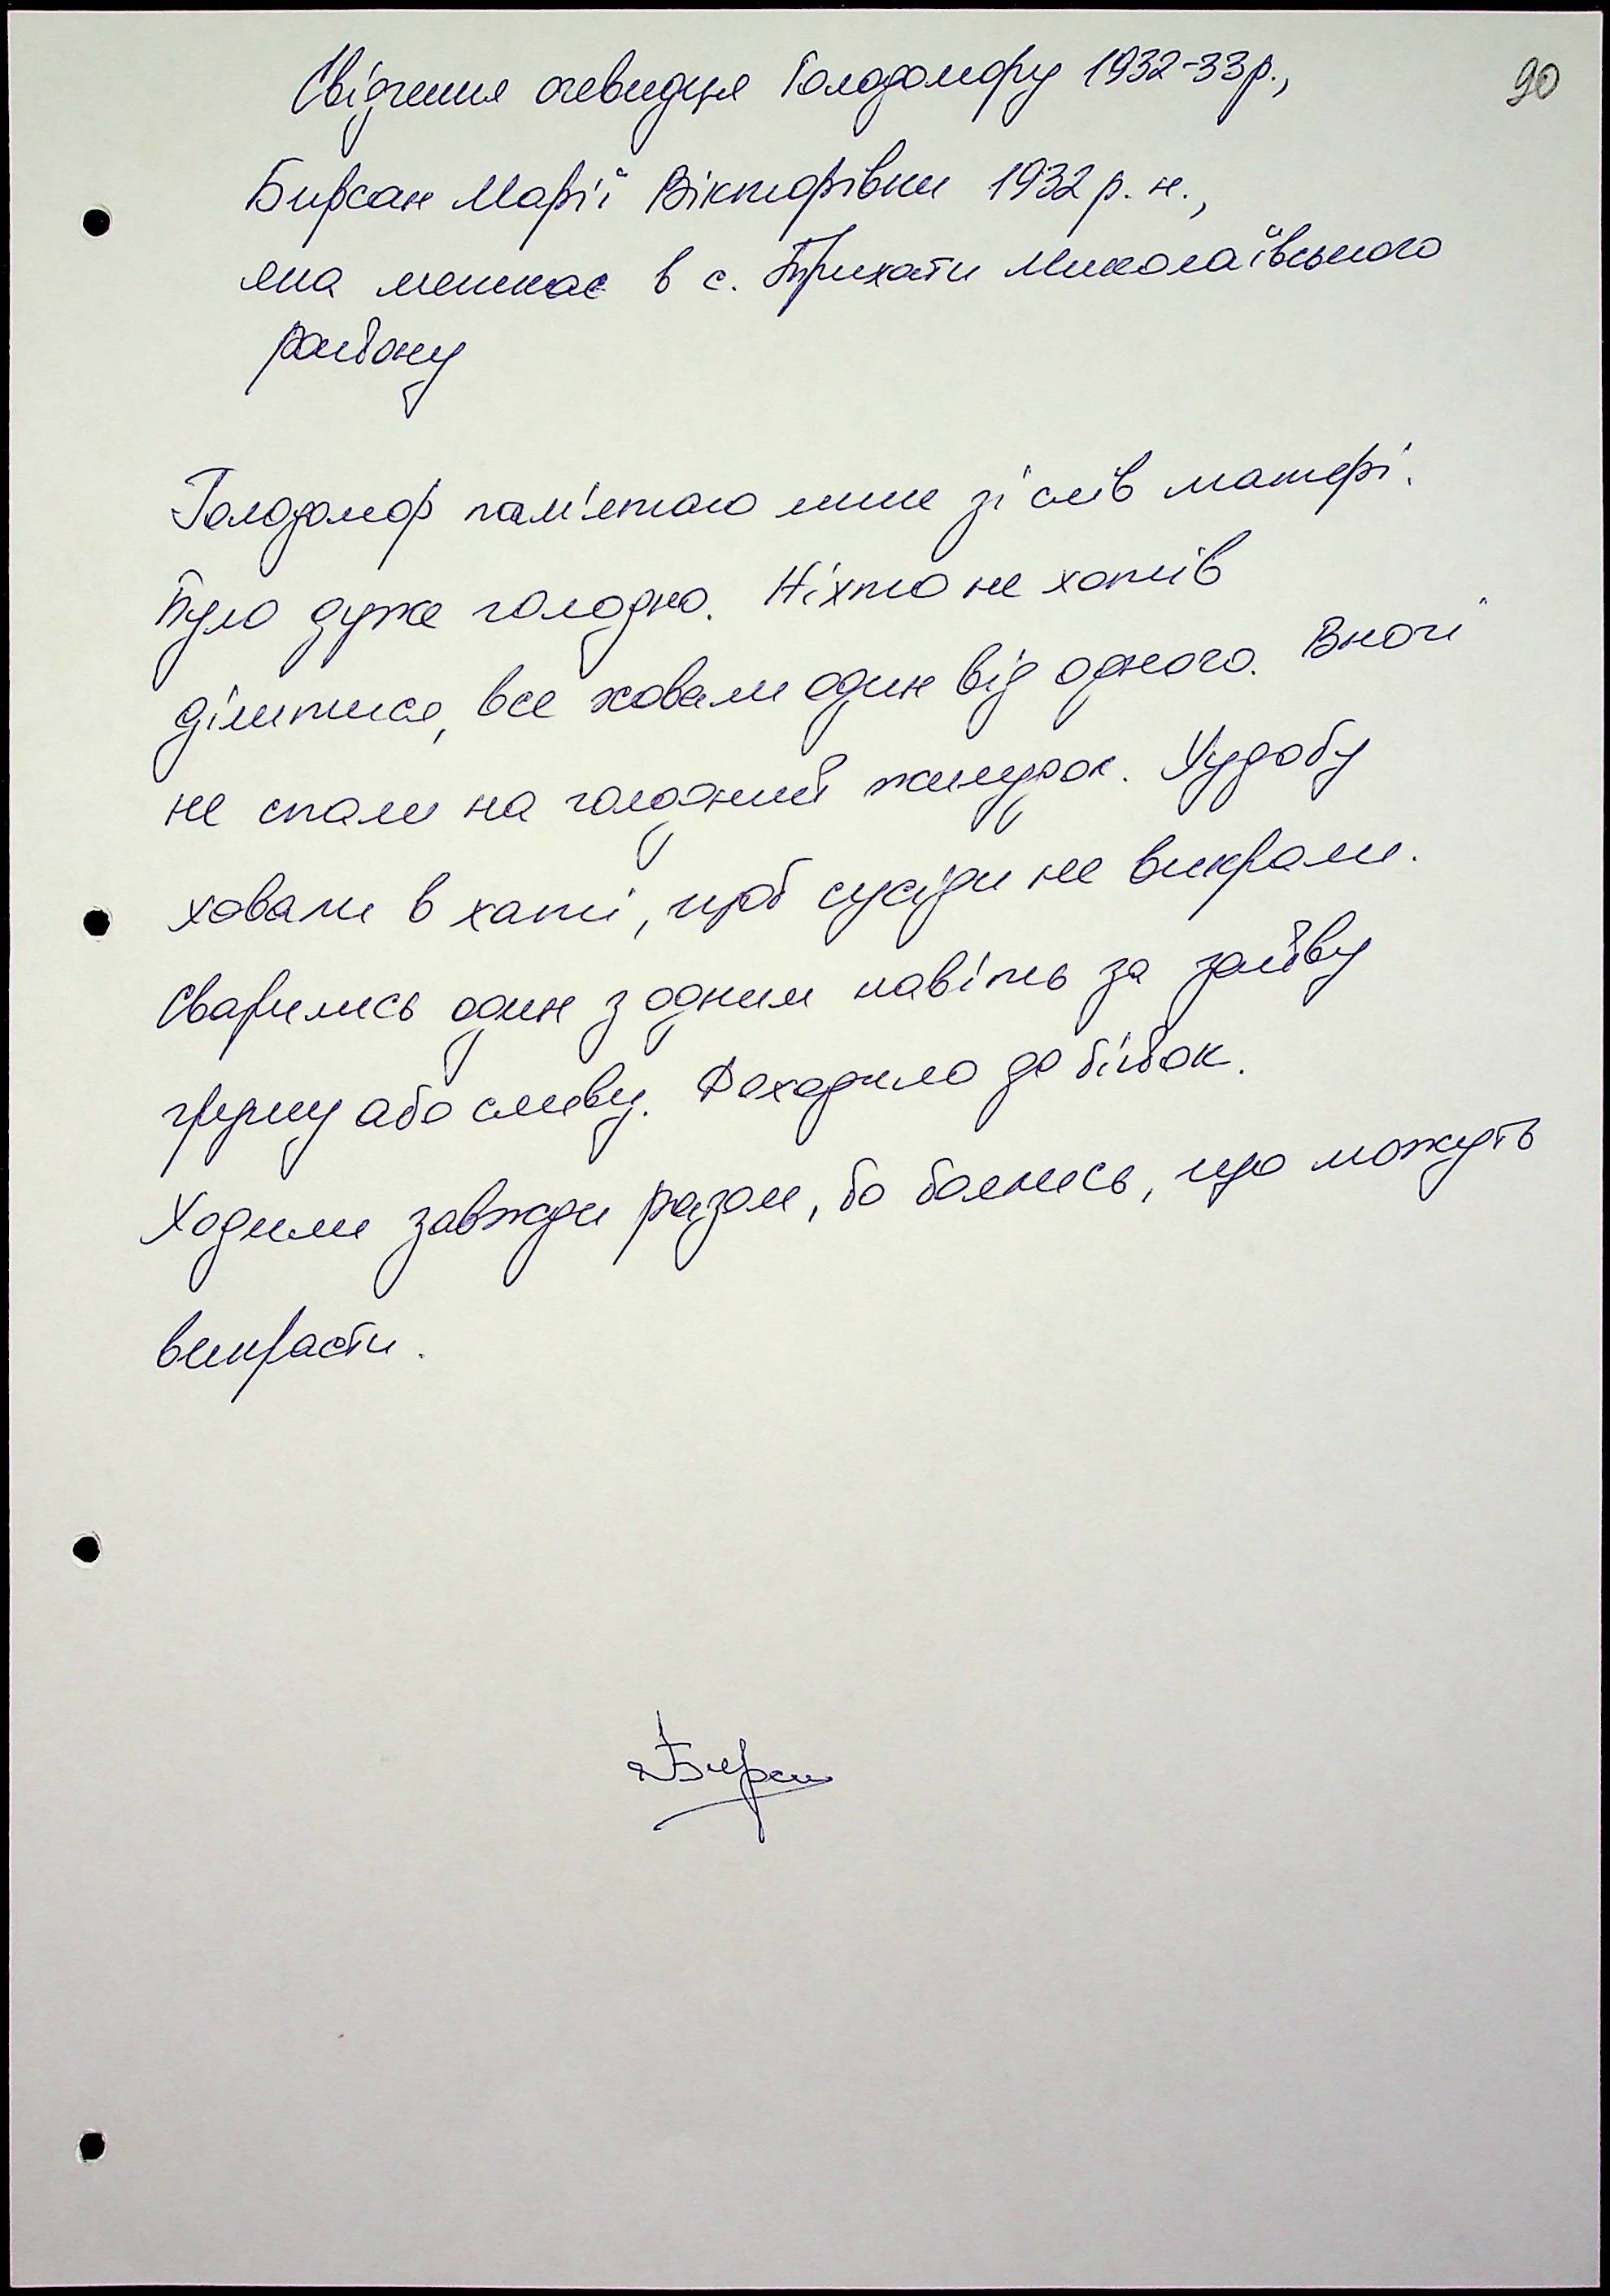 90
Свідчення очевидця Голодомору 1932-33р.,
Бирсан Марії Вікторівни 1932 р. н.,
яка мешкає в с. Трихати Миколаївського
району
Голодомор пам'ятаю лише зі слів матері.
Було дуже голодно. Ніхто не хотів
ділитися, все ховали один від одного. Вночі
не спали на голодний шлунок. Худобу
ховали в хаті, щоб сусіди не викрали.
Сварились один з одним навіть за зайву
грушу або сливу. Доходило до бійок.
Ходили завжди разом, бо боялись, що можуть
викрасти.